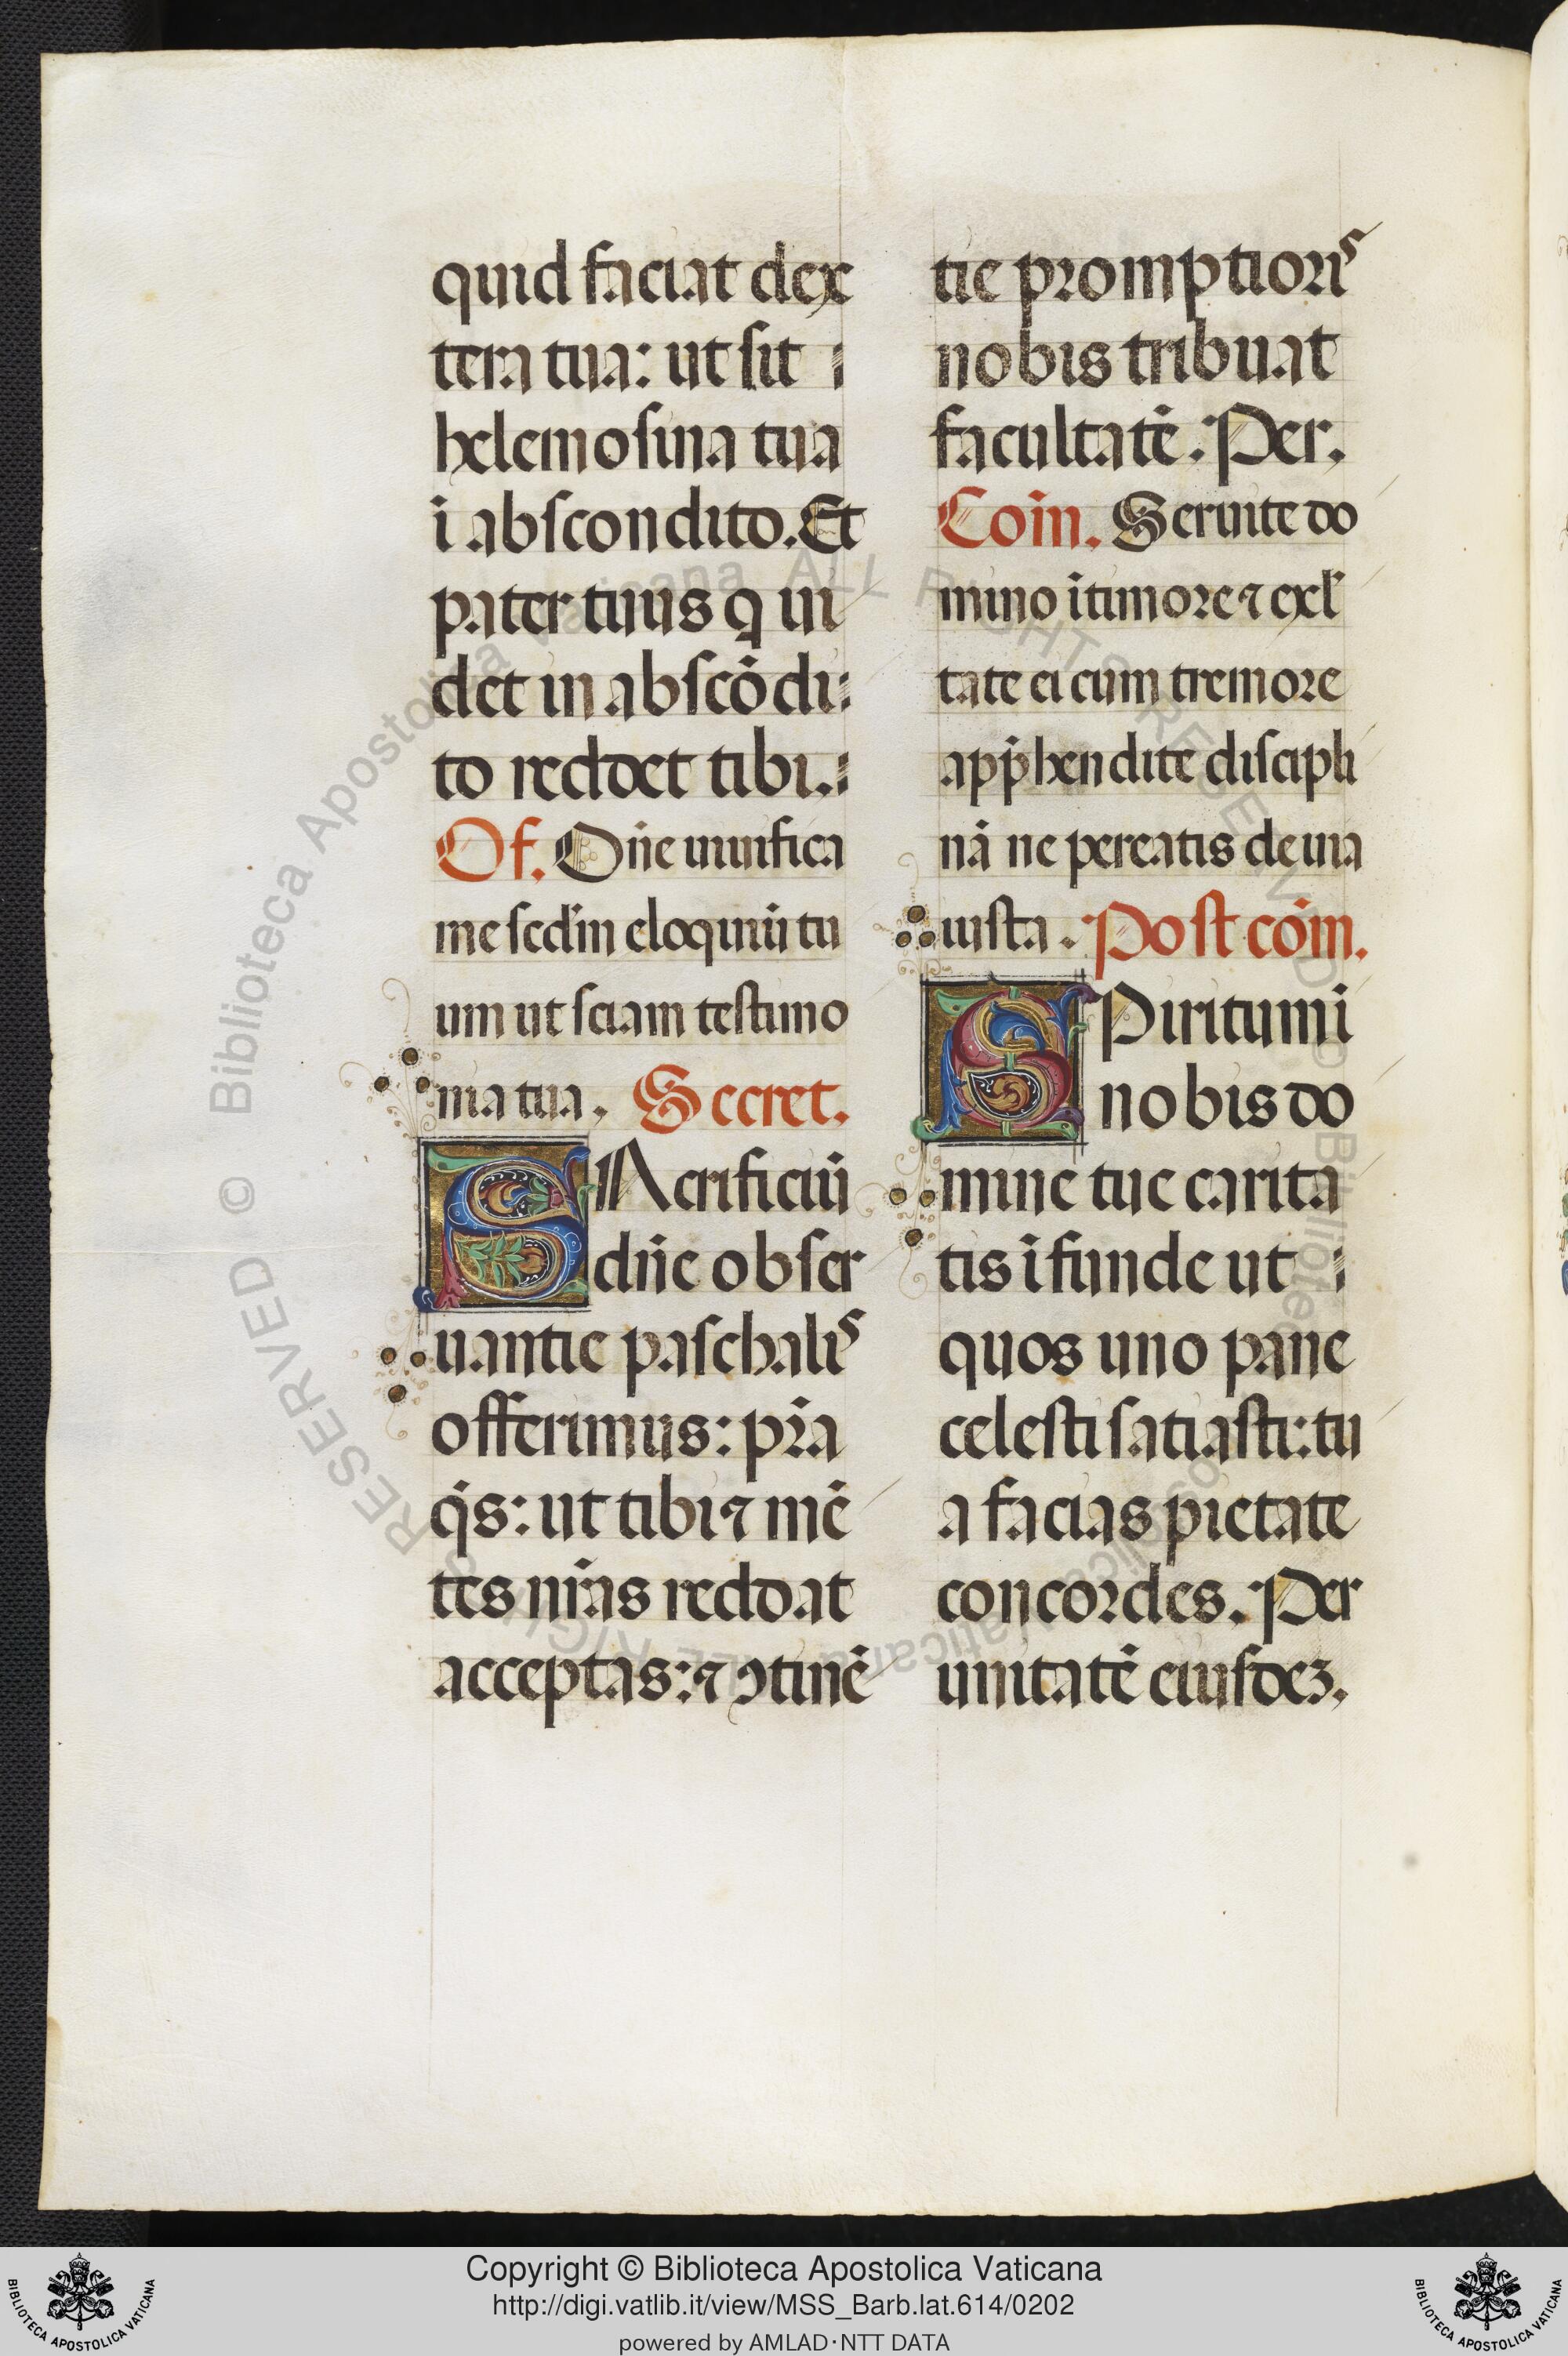 quid faciat dex
tera tua: ut sit
helemosina tua
ī abscondito. Et
pater tuus q ui
det in abscōdi
to reddet tibi.
Of. Dñe uiuifica
me scdm̄ eloquiū tu
um ut sciam testimo
nia tua. Secret.
SAcrificiū
dñe obser
uantie paschalis
offerimus: pr̄a
q̄s: ut tibi ⁊ mē
tes nr̄as reddat
acceptas: ⁊ ꝯtinē
tie promptioris
nobis tribuat
facultatē. Per.
Coīn. Seruite do
mino ī timore ⁊ exl'
tate ei cum tremore
app̄hendite discipli
nā ne pereatis de uia
iusta. Post cōm.
SPiritum ī
nobis do
mine tue carita
tis īfunde ut
quos uno pane
celesti satiasti: tu
a facias pietate
concordes. Per
unitatē eiusdeꝫ.
Copyright © Biblioteca Apostolica Vaticana
http://digi.vatlib.it/view/MSS_Barb.lat.614/0202
powered by AMLAD·NTT DATA
BIBLIOTECA APOSTOLICA VATICANA
BIBLIOTECA APOSTOLICA VATICANA